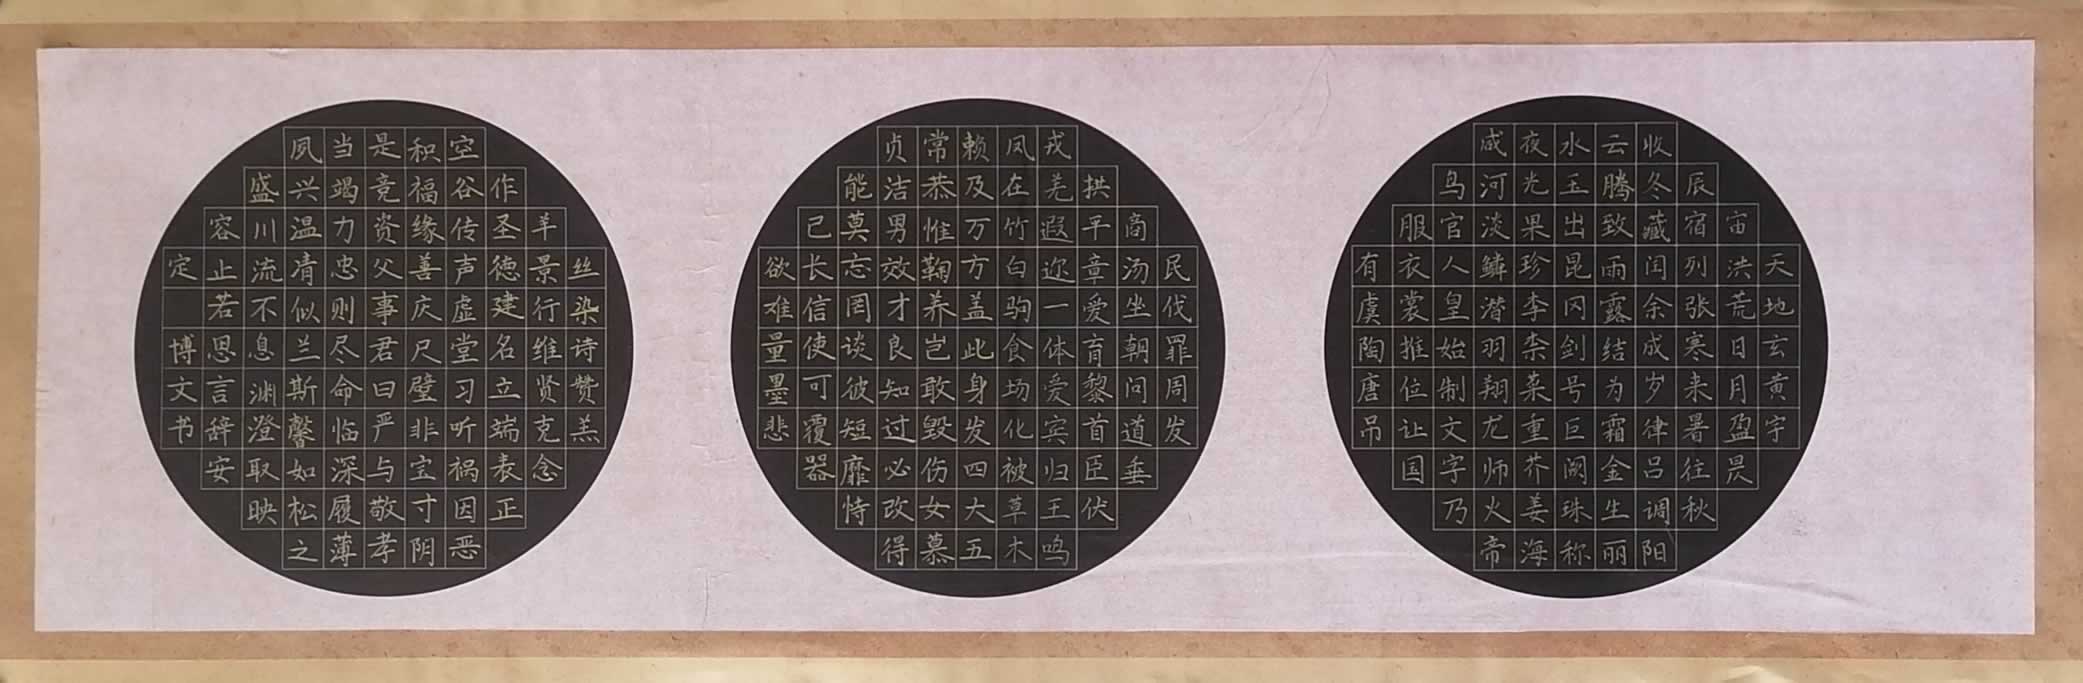 天地玄黄宇
宙洪荒日月盈昃
辰宿列张寒来暑往秋
收冬藏闰余成岁律吕调阳
云腾致雨露结为霜金生丽
水玉出昆冈剑号巨阙珠称
夜光果珍李柰菜重芥姜海
咸河淡鳞潜羽翔龙师火帝
鸟官人皇始制文字乃
服衣裳推位让国
有虞陶唐吊
民伐罪周发
商汤坐朝问道垂
拱平章爱育黎首臣伏
戎羌遐迩一体爱宾归王鸣
凤在竹白驹食场化被草木
赖及万方盖此身发四大五
常恭惟鞠养岂敢毁伤女慕
贞洁男效才良知过必改得
能莫忘罔谈彼短靡恃
己长信使可覆器
欲难量墨悲
丝染诗赞羔
羊景行维贤克念
作圣德建名立端表正
空谷传声虚堂习听祸因恶
积福缘善庆尺璧非宝寸阴
是竞资父事君曰严与敬孝
当竭力忠则尽命临深履薄
夙兴温清似兰斯馨如松之
盛川流不息渊澄取映
容止若思言辞安
定 博文书